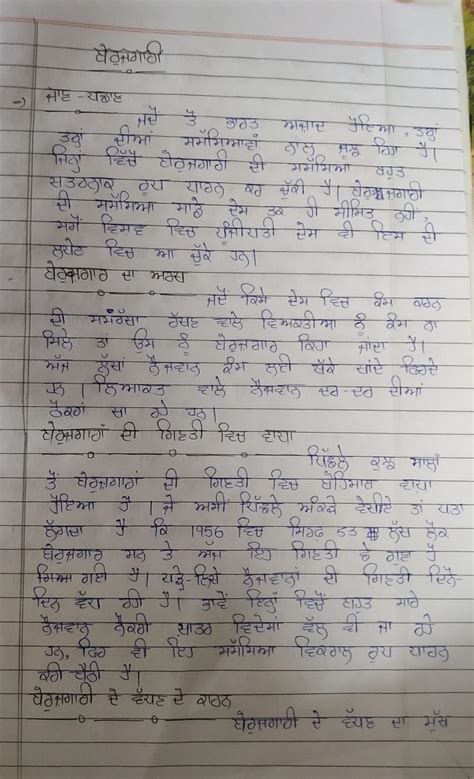 ਬੇਰੁਜ਼ਗਾਰੀ
ਜਾਣ-ਪਛਾਣ
ਜਦੋਂ ਤੋਂ ਭਾਰਤ ਅਜ਼ਾਦ ਹੋਇਆ,
ਦੀਆਂ ਸਮੱਸਿਆਵਾਂ ਨਾਲ ਜੂਝ ਰਿਹਾ ਹੈ।
ਜਿਨ੍ਹਾਂ ਵਿੱਚੋਂ ਬੇਰੁਜ਼ਗਾਰੀ ਦੀ ਸਮੱਸਿਆ ਬਹੁਤ
ਖ਼ਤਰਨਾਕ ਰੂਪ ਧਾਰਨ ਕਰ ਚੁੱਕੀ ਹੈ। ਬੇਰੁਜ਼ਗਾਰੀ
ਦੀ ਸਮੱਸਿਆ ਸਾਡੇ ਦੇਸ਼ ਤਕ ਹੀ ਸੀਮਿਤ ਨਹੀਂ,
ਸਗੋਂ ਵਿਸ਼ਵ ਵਿਚ ਪੂੰਜੀਪਤੀ ਦੇਸ਼ ਵੀ ਇਸ ਦੀ
ਲਪੇਟ ਵਿਚ ਆ ਚੁੱਕੇ ਹਨ।
ਬੇਰੁਜ਼ਗਾਰ ਦਾ ਅਰਥ
ਜਦੋਂ ਕਿਸੇ ਦੇਸ਼ ਵਿਚ ਕੰਮ ਕਰਨ
ਦੀ ਸਮਰੱਥਾ ਰੱਖਣ ਵਾਲੇ ਵਿਅਕਤੀਆ ਨੂੰ ਕੰਮ ਨਾ
ਮਿਲੇ ਤਾਂ ਉਸ ਨੂੰ ਬੇਰੁਜ਼ਗਾਰ ਕਿਹਾ ਜਾਂਦਾ ਹੈ।
ਅੱਜ ਲੱਖਾਂ ਨੌਜਵਾਨ ਕੰਮ ਲਈ ਧੱਕੇ ਖਾਂਦੇ ਫਿਰਦੇ
ਹਨ। ਲਿਆਕਤ ਵਾਲੇ ਨੌਜਵਾਨ ਦਰ-ਦਰ ਦੀਆਂ
ਠੋਕਰਾਂ ਖਾ ਰਹੇ ਹਨ।
ਬੇਰੁਜ਼ਗਾਰਾਂ ਦੀ ਗਿਣਤੀ ਵਿਚ ਵਾਧਾ
ਪਿੱਛਲੇ ਕੁਝ ਸਾਲਾਂ
ਤੋਂ ਬੇਰੁਜ਼ਗਾਰਾਂ ਦੀ ਗਿਣਤੀ ਵਿਚ ਬੇਹਿਸਾਬ ਵਾਧਾ
ਹੋਇਆ ਹੈ। ਜੇ ਅਸੀਂ ਪਿੱਛਲੇ ਅੰਕੜੇ ਵੇਖੀਏ ਤਾਂ ਪਤਾ
ਲੱਗਦਾ ਹੈ ਕਿ 1956 ਵਿਚ ਸਿਰਫ਼ 53 ਲੱਖ ਲੋਕ
ਬੇਰੁਜ਼ਗਾਰ ਸਨ ਤੇ ਅੱਜ ਇਹ ਗਿਣਤੀ
ਗਈ ਹੈ। ਪੜ੍ਹੇ-ਲਿਖੇ ਨੌਜਵਾਨਾਂ ਦੀ ਗਿਣਤੀ ਦਿਨੋ-
ਦਿਨ ਵੱਧ ਰਹੀ ਹੈ। ਭਾਵੇਂ ਇਨ੍ਹਾਂ ਵਿਚੋਂ ਬਹੁਤ ਸਾਰੇ
ਨੌਜਵਾਨ ਨੌਕਰੀ ਖਾਤਰ ਵਿਦੇਸ਼ਾਂ ਵੱਲ ਵੀ ਜਾ ਰਹੇ
ਹਨ, ਫਿਰ ਵੀ ਇਹ ਸਮੱਸਿਆ ਵਿਕਰਾਲ ਰੂਪ ਧਾਰਨ
ਕਰੀ ਬੈਠੀ ਹੈ।
ਬੇਰੁਜ਼ਗਾਰੀ ਦੇ ਵੱਧਣ ਦੇ ਕਾਰਨ
ਬੇਰੁਜ਼ਗਾਰੀ ਦੇ ਵੱਧਣ ਦਾ ਮੁੱਖ